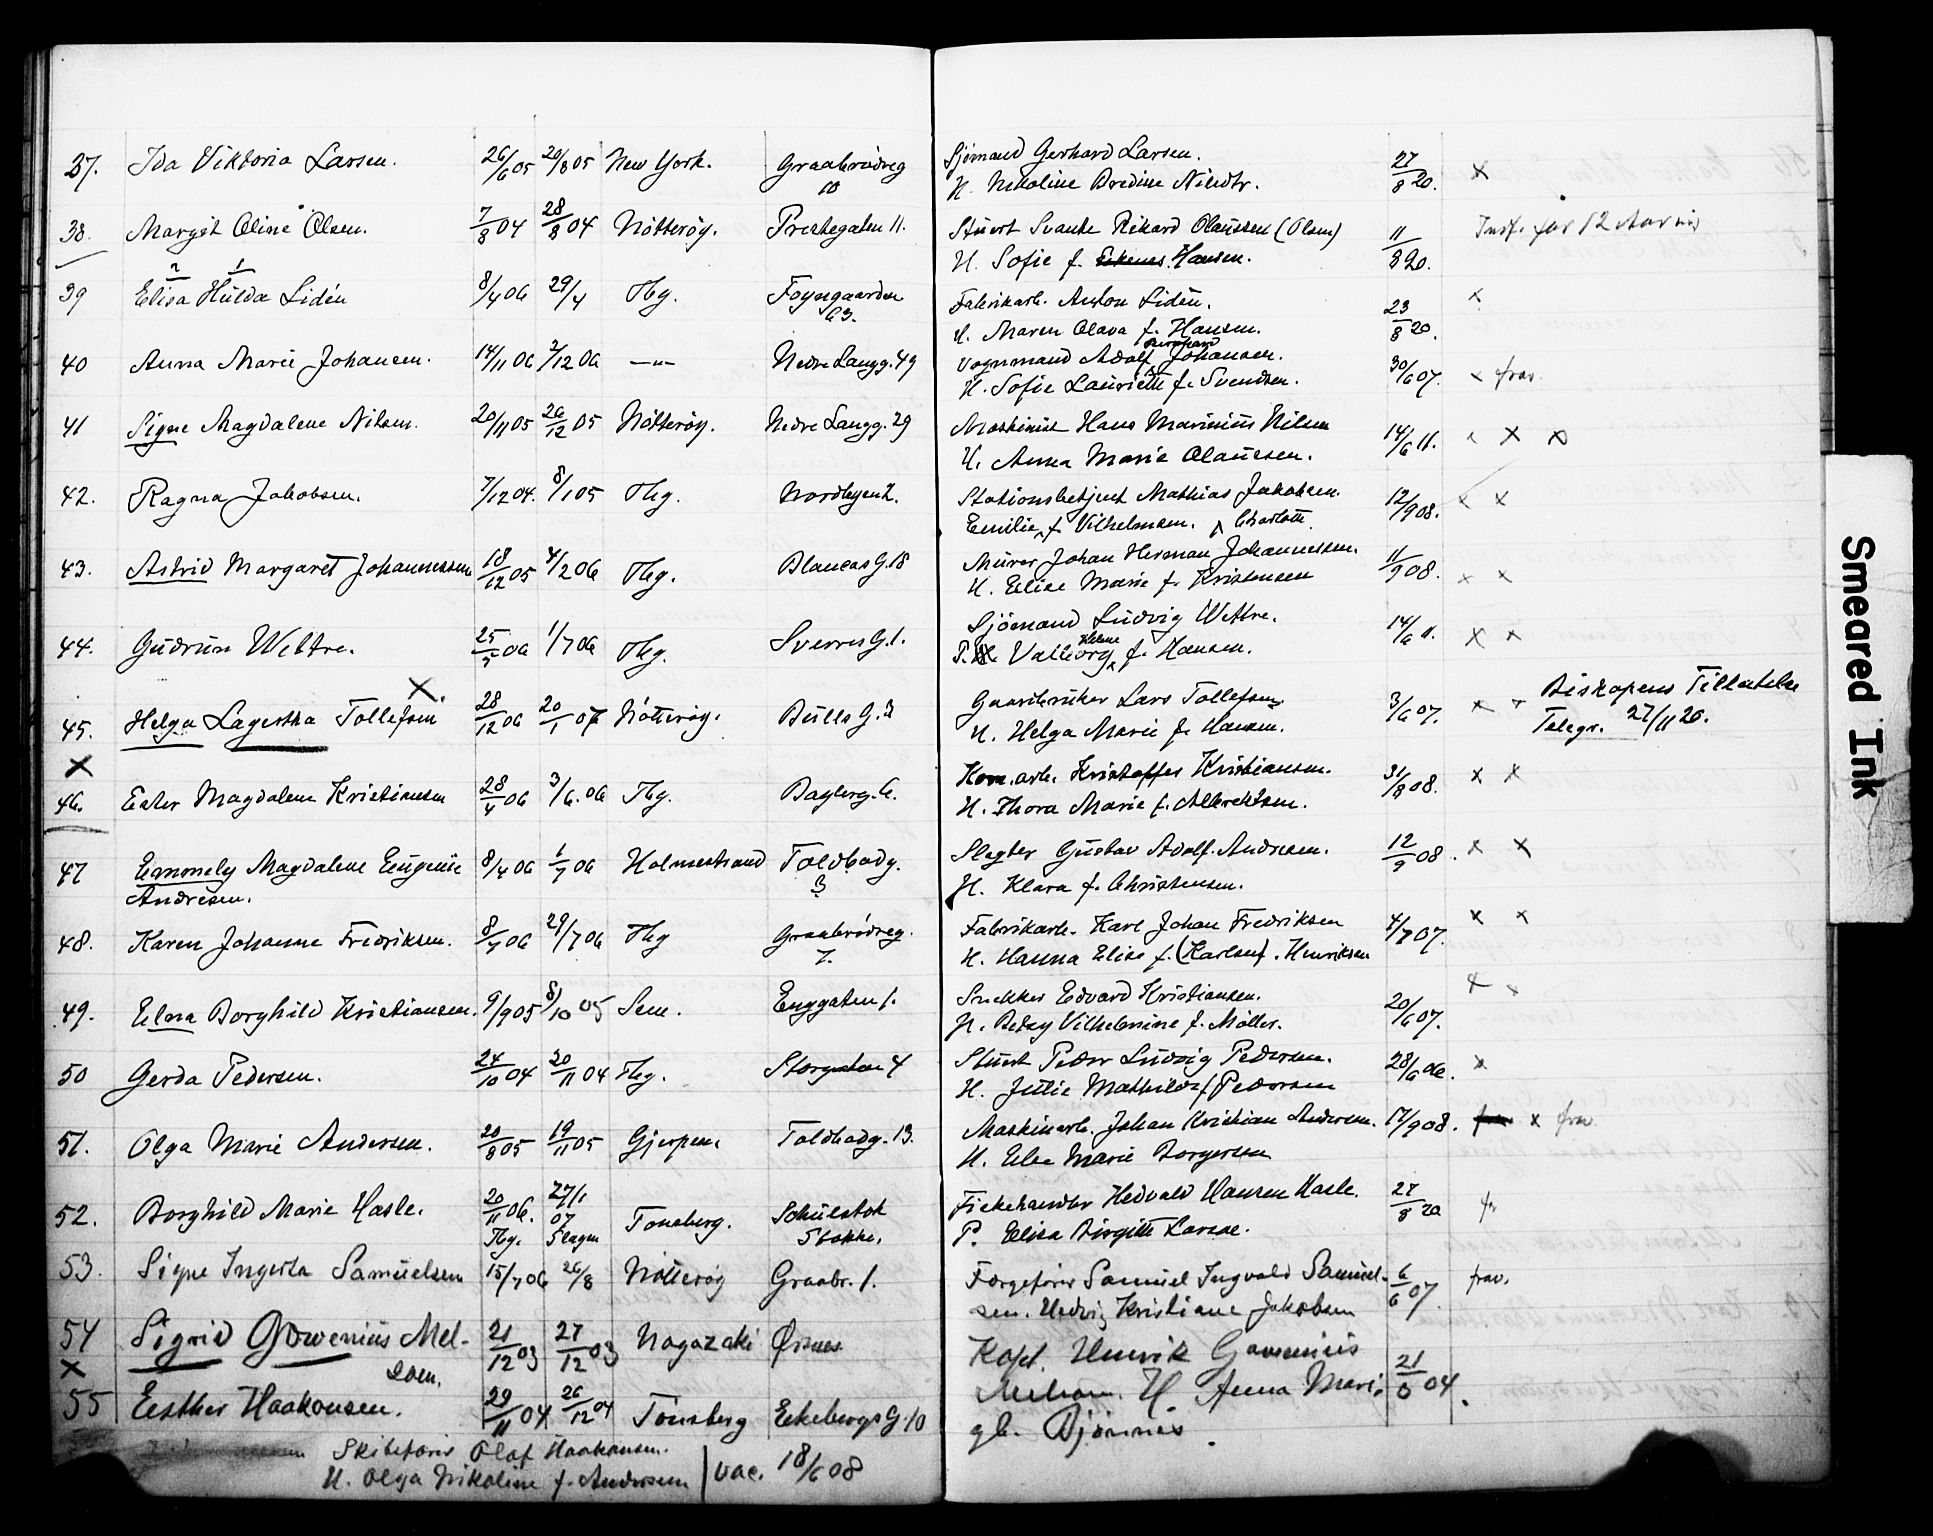 37. Ida Viktoria Larsen. 26/6 05 20/8 05 New York. Graabrödreg 10 Sjömand Gerhard Larsen. 27/8 20. x
H. Nikoline Bredine
38. Margit Oline Olsen. 7/8 04 28/8 04 Nötteröy. Prestegaten 11. Stuert Svante Rikard Olaussen (Olsen) 11/8 20.
H. Sofie f. Hansen.
39 2 Elisa 1 Hulda Lidén 8/4 06 29/4 Tbg. Foyngaarden 63. Fabrikarb. Anton Lidén. 23/8 20. x
H. Maren Olava f. Hansen.
40 Anna Marie Johansen. 14/11 06 2/12 06 —"— Nedre Langg. 49 Vognmand Adolf Johansen. 30/6 07. x frav.
H. Sofie Lauritte f. Svendsen.
41 Signe Magdalene Nilsen. 20/11 05 26/12 05 Nötteröy. Nedre Langg. 29 Maskinist Hans Marinius Nilsen 14/6 11. x x x
H. Anna Marie Olaussen.
42. Ragna Jakobsen. 7/12 04. 8/1 05 Tbg. Nordbyen 2. Stationsbetjent Mathias Jakobsen. 12/9 08. x x
Emilie f. Vilhelmsen. Charlotte.
43. Astrid Margaret Johannessen 18/12 05 4/2 06 Tbg. Blancas G. 18 Murer Johan Herman Johannessen. 11/9 08. x x
H. Elise Marie f. Kristensen
44. Gudrun Wettre. 25/5 06 1/7 06 Tbg. Sverres G. 1. Sjömand Ludvig Wettre. 14/6 11. x x
P. Valborg Helene f. Hansen.
45. Helga Lagertha Tollefsen x. 28/12 06 20/1 07 Nötteröy. Bulls G. 3 Gaardbruker Lars Tollefsen 3/6 07. x x Biskopens Tillatelse
H. Helga Marie f. Hansen. Telegr. 27/11 20.
x
46. Ester Magdalene Kristiansen 28/4 06 3/6. 06 Tbg. Baglerg. 6. Kom.arb. Kristoffer Kristiansen. 31/8 08. x x
H. Thora Marie f. Albrektsen.
47 Emmely Magdalene Eugenie Andresen. 8/4 06 1/7 06 Holmestrand Toldbodg. 3 Slagter Gustav Adolf Andresen. 12/9 08. x x
H. Klara f. Christensen.
48. Karen Johanne Fredriksen. 8/7 06 29/7 06 Tbg Graabrödreg. 7. Fabrikarb. Karl Johan Fredriksen 4/7 07. x x
H. Hanna Elise f. (Karlsen). Henriksen
49. Elna Borghild Kristiansen. 9/9 05 8/10 05 Sem. Enggaten 1. Snekker Edvard Kristiansen. 20/6 07. x x
H. Betzy Vilhelmine f. Möller.
50 Gerda Pedersen. 24/10 04 20/11 04 Tbg. Storgaten 4 Stuert Peder Ludvig Pedersen. 28/6 06. x
H. Julie Mathilde f. Pedersen
51. Olga Marie Andersen. 20/8 05 19/11 05 Gjerpen. Toldbodg. 13. Maskinarb. Johan Kristian Andersen. 17/9 08. x frav
H. Else Marie Borgersen
52. Borghild Marie Hasle. 20/11 06. Tbg. 27/1 07 Slagen Tonsberg. Schulstok Stokke. Fiskehandler Hedvald Hansen Hasle. 27/8 20 fr
P. Elisa Birgitte Larsen.
53. Signe Ingerta Samuelsen 15/7 06 26/8 Nötteröy Graabr. 1. Færgefører Samuel Ingvald Samuel- 6/6 07. frav.
sen. Hedvig Kristiane Jakobsen
54 Sigrid Gowenius Mel- 21/12 03 27/12 03 Nagazaki Ørsnes Kapt. Henrik Gowenius 21/6 04.
x som. H Anna Marie
55 Esther Haakonsen. 29/11 04 26/12 04 Tönsberg Eekebergs G. 10 gb. Bjönnes.
Skibsfører Olaf Haakonsen.
H. Olga Nikoline f. Andersen vac. 18/6 08
Smeared Ink